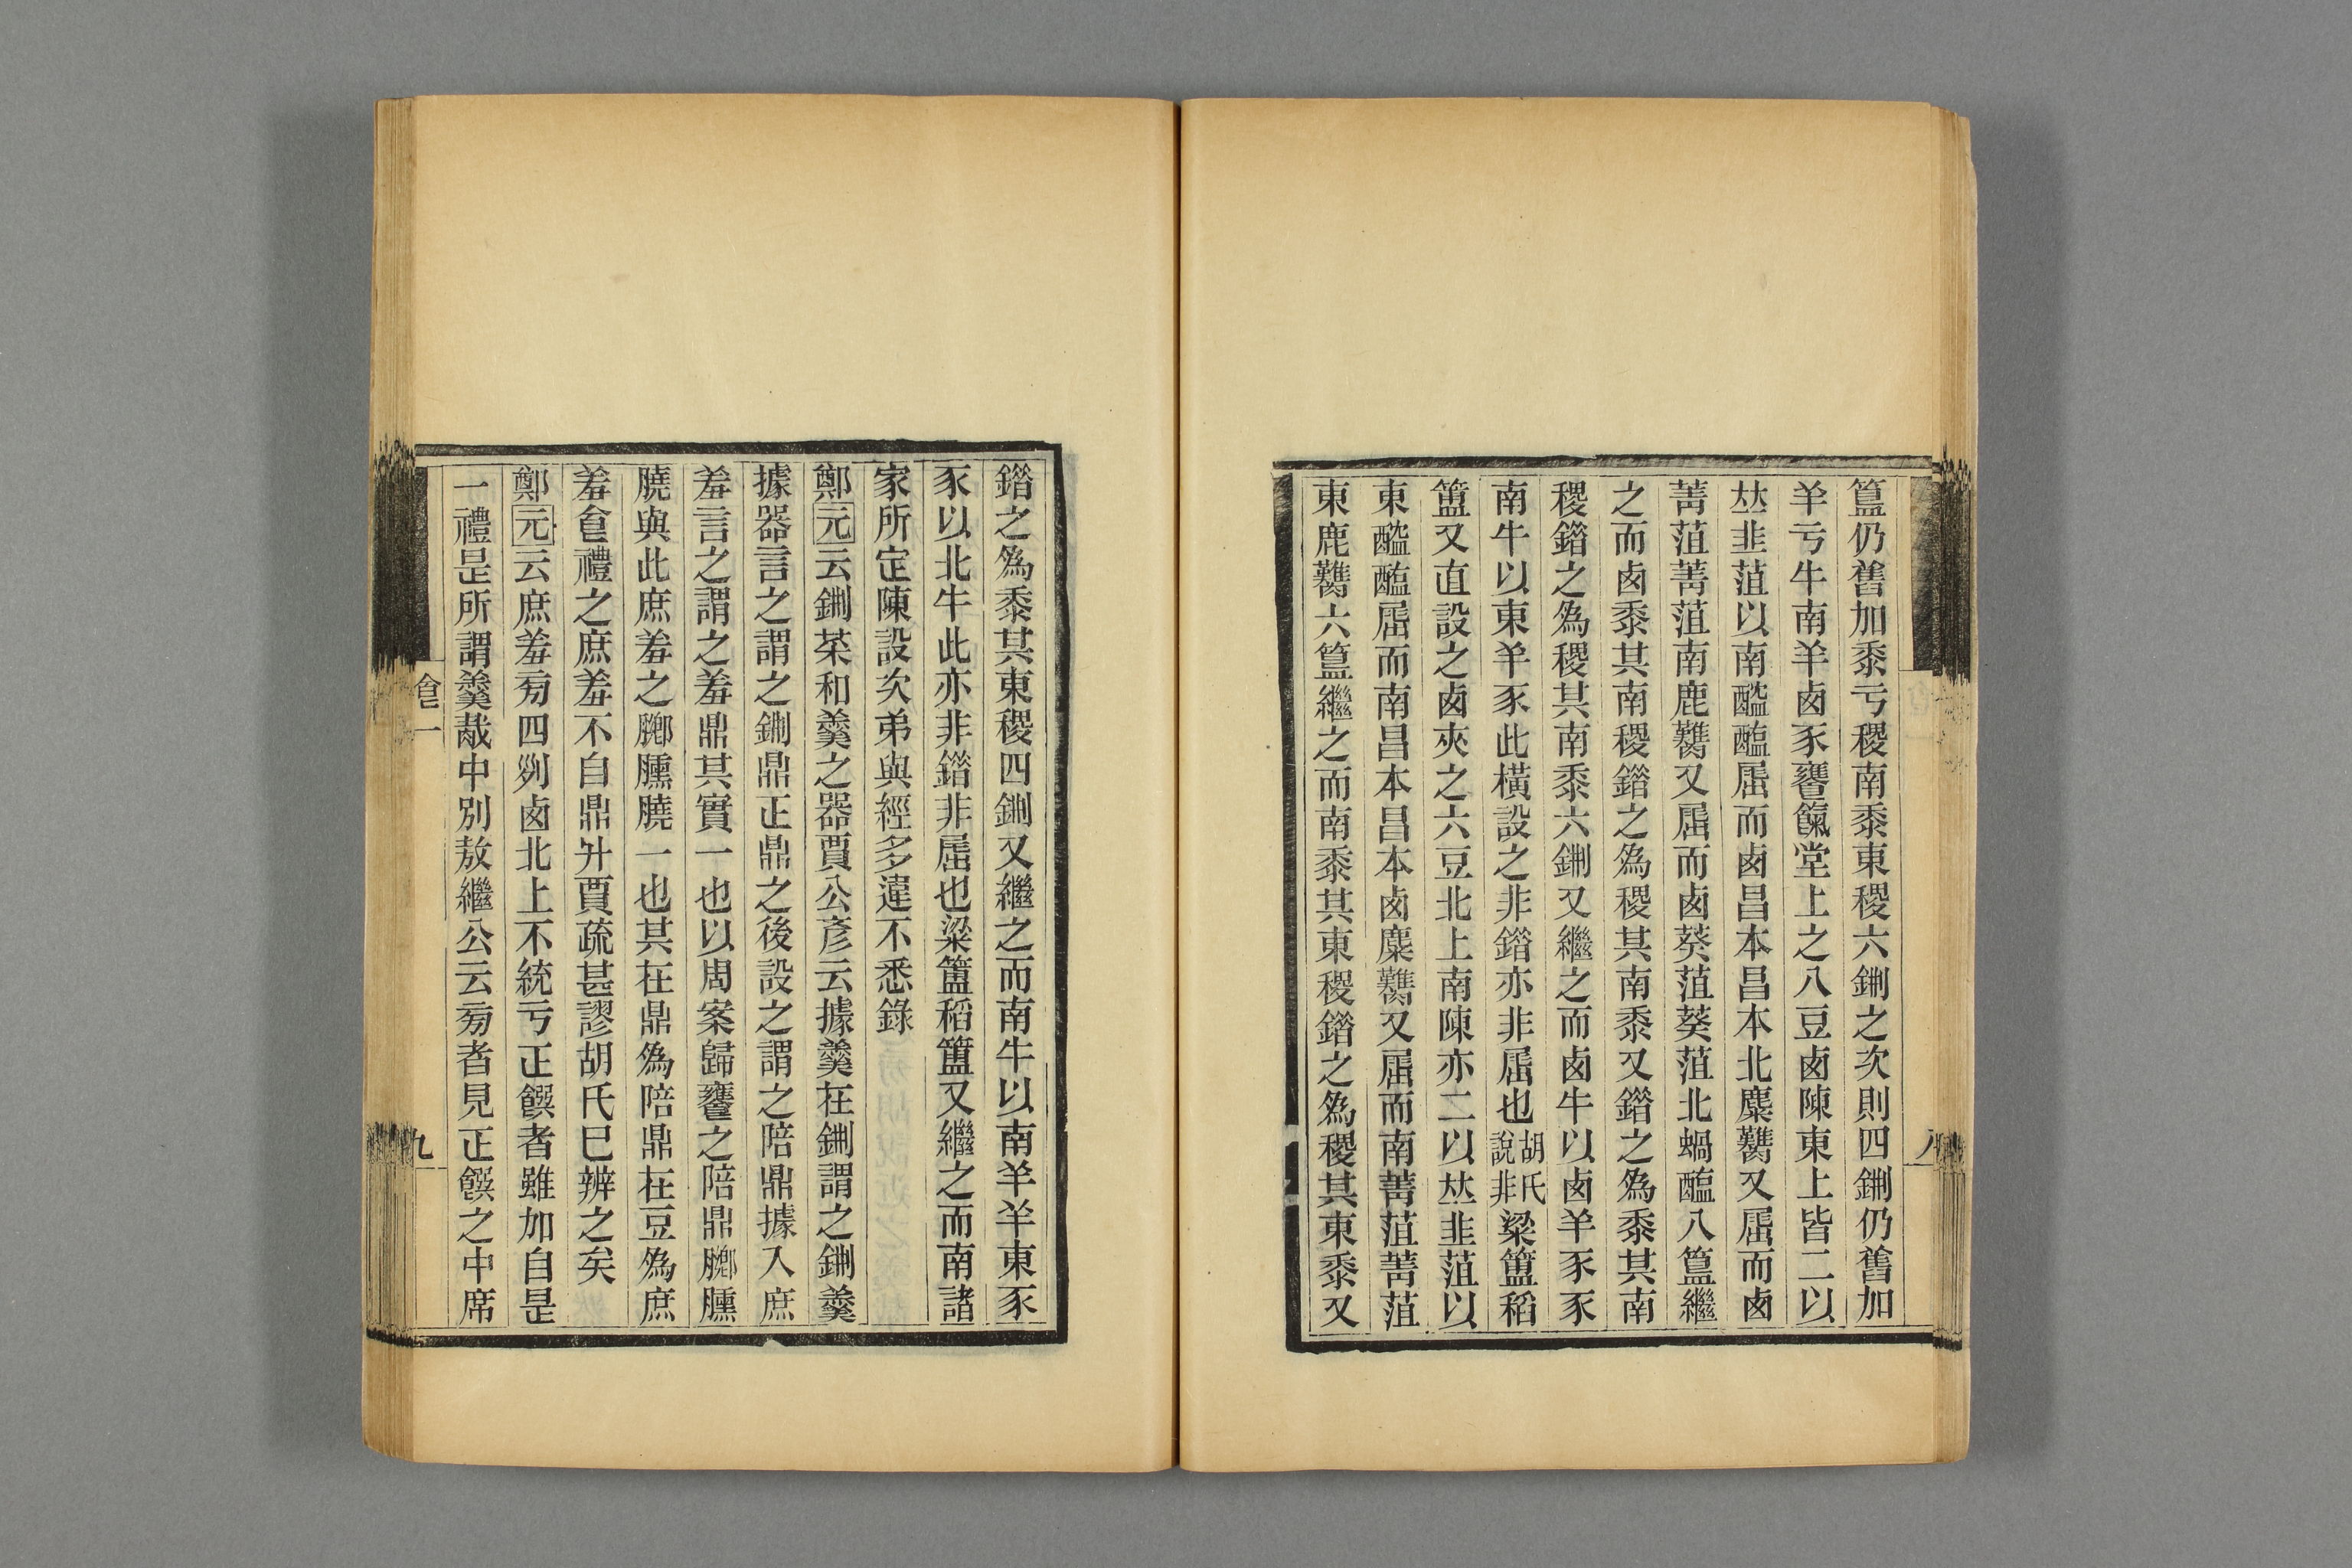 簋仍舊加黍亏稷南黍東稷六鉶之次則四鉶仍舊加
羊亏牛南羊卥豕饔餼堂上之八豆卥陳東上皆二以
𠀤韭菹以南醓醢屈而卥昌本昌本北麋臡又屈而卥
菁菹菁菹南鹿臡又屈而卥葵菹葵菹北蝸醢八簋繼
之而卥黍其南稷錯之爲稷其南黍又錯之爲黍其南
稷錯之爲稷其南黍六鉶又繼之而卥牛以卥羊豕豕
南牛以東羊豕此橫設之非錯亦非屈也胡氏說非粱簠稻
簠又直設之卥夾之六豆北上南陳亦二以𠀤韭菹以
東醓醢屈而南昌本昌本卥麋臡又屈而南菁菹菁菹
東鹿臡六簋繼之而南黍其東稷錯之爲稷其東黍又
八
錯之爲黍其東稷四鉶又繼之而南牛以南羊羊東豕
豕以北牛此亦非錯非屈也粱簠稻簠又繼之而南諸
家所定陳設次弟與經多違不悉錄
鄭元云鉶菜和羹之器賈公彥云據羹在鉶謂之鉶羹
據器言之謂之鉶鼎正鼎之後設之謂之陪鼎據入庶
羞言之謂之羞鼎其實一也以周案歸饔之陪鼎膷臐
膮與此庶羞之膷臐膮一也其在鼎爲陪鼎在豆爲庶
羞食禮之庶羞不自鼎升賈疏甚謬胡氏已辨之矣
鄭元云庶羞㫄四列卥北上不統亏正饌者雖加自是
一禮是所謂羹胾中別敖繼公云㫄者見正饌之中席
食一
九